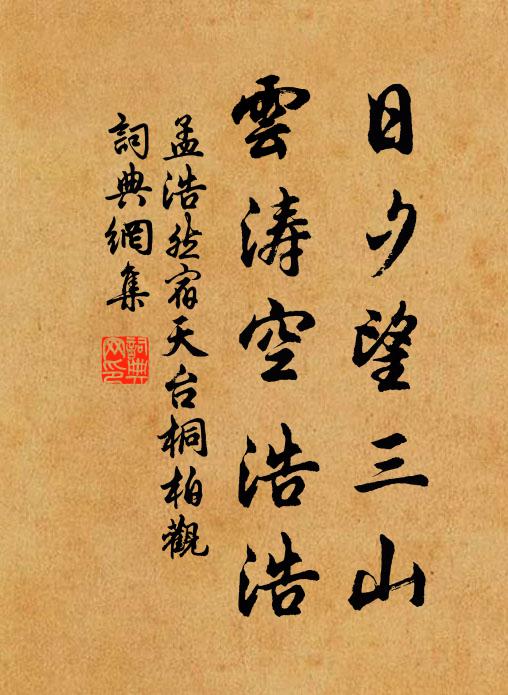 日夕望三山
雲涛空浩浩
孟浩然宿天台桐柏觀
詞典網集
詞典網印